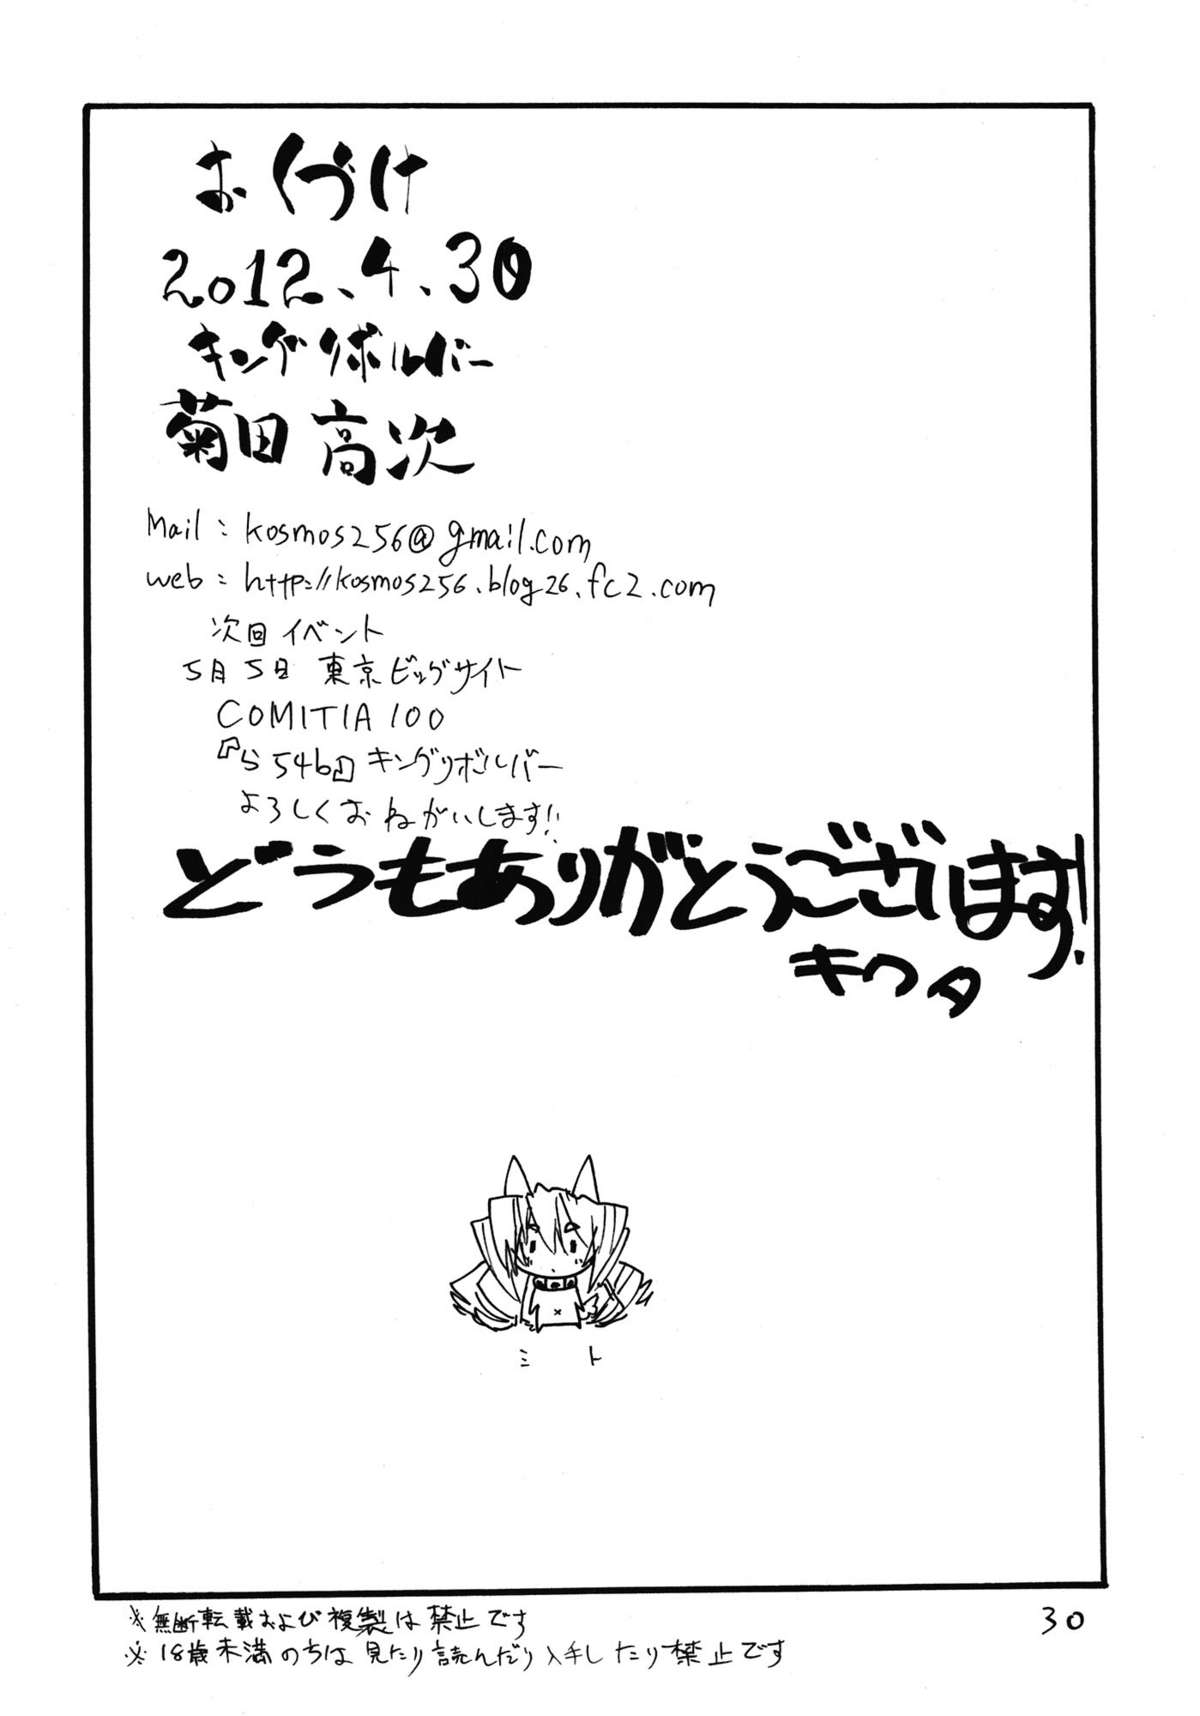 おくづけ
2012、4、30
キングリボルバー
菊田 高次
Mail : kosmos256@gmail.com
web : http://kosmos256.blog26.fc2.com
次回 イベント
5月5日 東京ビッグサイト
COMITIA 100
『ら54b』キングリボルバー
よろしくおねがいします!!
どうもありがとうございます!
キクタ
ミト
※無断転載および複製は禁止です
※18歳未満のちは見たり読んだり入手したり禁止です
30